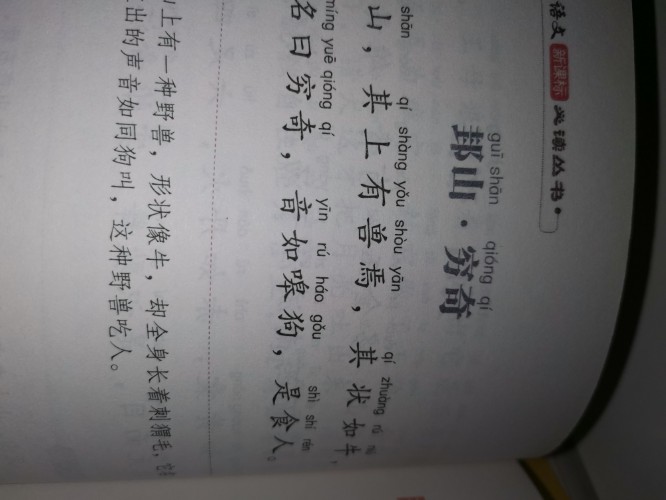 语文 新课标 必读丛书
guī shān qióng qí
邽山·穷奇
shān qí shàng yǒu shòu yān qí zhuàng rú
山，其上有兽焉，其状如牛，
míng yuē qióng qí yīn rú háo gǒu shì shí rén
名曰穷奇，音如嗥狗，是食人。
上有一种野兽，形状像牛，却全身长着刺猬毛，它
出的声音如同狗叫，这种野兽吃人。